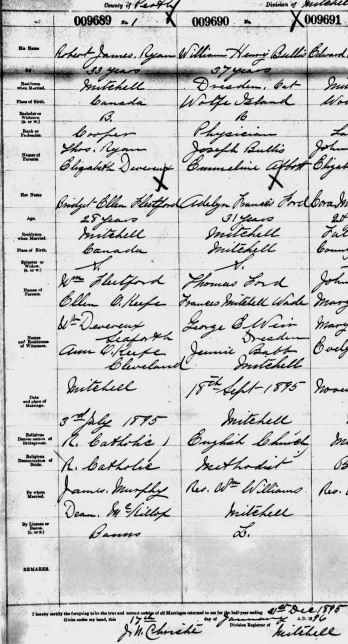 County of Perth
Division of Mitchell
009689 No. 1
009690 No.
009691
His Name
Robert James Ryan
William Henry Bullis
Edward
Age
33 years
37 years
Residence when Married.
Mitchell
Dresden, Ont
Place of Birth.
Canada
Wolfe Island
Bachelor or Widower. (B. or W.)
B.
B
Rank or Profession.
Cooper
Physician
Names of Parents
Thos. Ryan
Joseph Bullis
John
Elizabeth Devereux
Emmeline Abbott
Her Name
Bridget Ellen Fleetford
Adelyn Francis Ford
Age.
28 years
31 years
Residence when Married.
Mitchell
Mitchell
Place of Birth.
Canada
Mitchell
Spinster or Widow. (S. or W.)
S.
S.
Names of Parents.
Wm Fleetford
Thomas Ford
John
Ellen O'Keefe
Frances Mitchell Wade
Mary
Names and Residences of Witnesses.
Wm Devereux
George E Weir
Mary
Seaforth
Dresden
Ann O'Keefe
Jennie Babb
Cleveland
Mitchell
Date and place of Marriage.
Mitchell
18th Sept 1895
3rd July 1895
Mitchell
Religious Denomination of Bridegroom.
R. Catholic
English Church
Religious Denomination of Bride.
R. Catholic
Methodist
By whom Married.
James Murphy
Rev. Wm Williams
Rev.
Dean. McKillop
Mitchell
By License or Banns. (L. or B.)
Banns
L.
REMARKS
I hereby certify the foregoing to be the true and correct entries of all Marriages returned to me for the half-year ending 31st Dec 1895
Given under my hand, this 17th day of January A.D. 96
J. W. Christie
Division Registrar of Mitchell